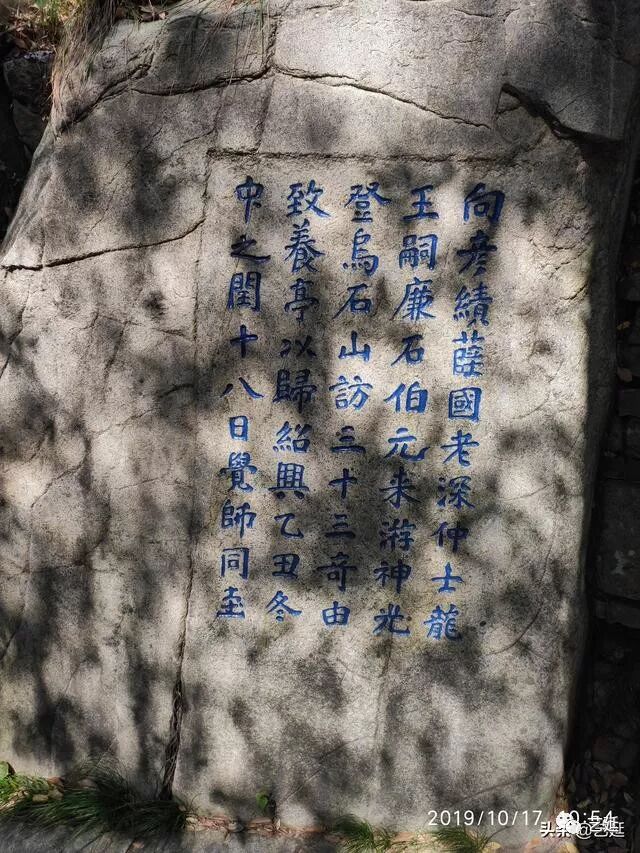 向彦績薛國老深仲士龍
王嗣廉石伯元来游神光
登烏石山訪三十三奇由
致養亭以歸紹興乙丑冬
中之閏十八日覺師同至
2019/10/17
头条